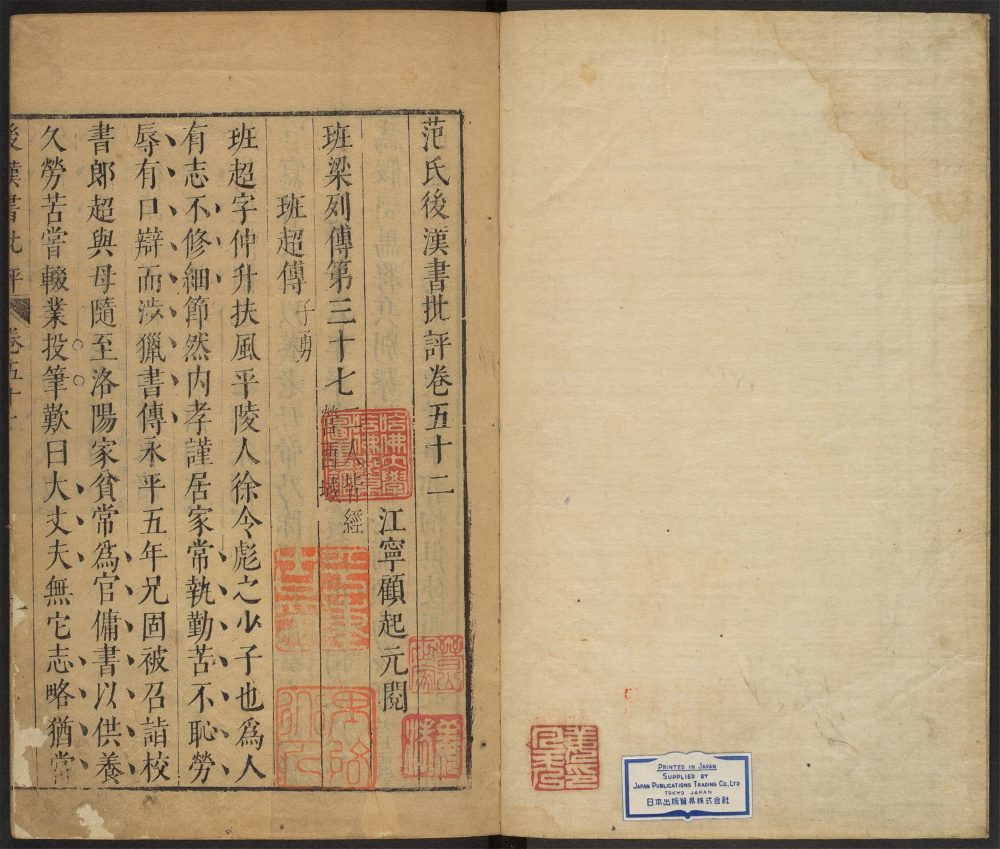 PRINTED IN JAPAN
SUPPLIED BY
JAPAN PUBLICATIONS TRADING CO., LTD
TOKYO JAPAN
日本出版貿易株式会社
范氏後漢書批評卷五十二
江寧顧起元閱
班梁列傳第三十七
二人皆經
營西域
班超傳子勇
班超字仲升扶風平陵人徐令彪之少子也爲人
有志不修細節然内孝謹居家常執勤苦不恥勞
辱有口辯而涉獵書傳永平五年兄固被召詣校
書郎超與母隨至洛陽家貧常爲官傭書以供養
久勞苦嘗輟業投筆歎曰大丈夫無它志略猶當
後漢書批評
卷五十二